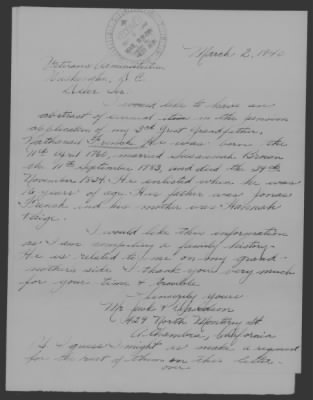 March 2, 1940
Veterans Administration
Washington, D. C.
Dear Sir:
I would like to have an
abstract of annual in the pension
application of my 3rd Great Grandfather,
Nathaniel French. He was born the
11th April 1760, married Susannah Brown
the 4th September 1783, and died the 24th
November 1824. He enlisted when he was
16 years of age. His father was Jonas
French and his mother was Hannah
Paige.
I would like this information
as I am compiling a family history.
He is related to me on my grand-
mother's side. I thank you very much
for your time & trouble.
Sincerely yours
Mr. Jack R
424 North Monterey St
Alhambra, California
I guess I might as make a request
for the rest of them on this letter
over